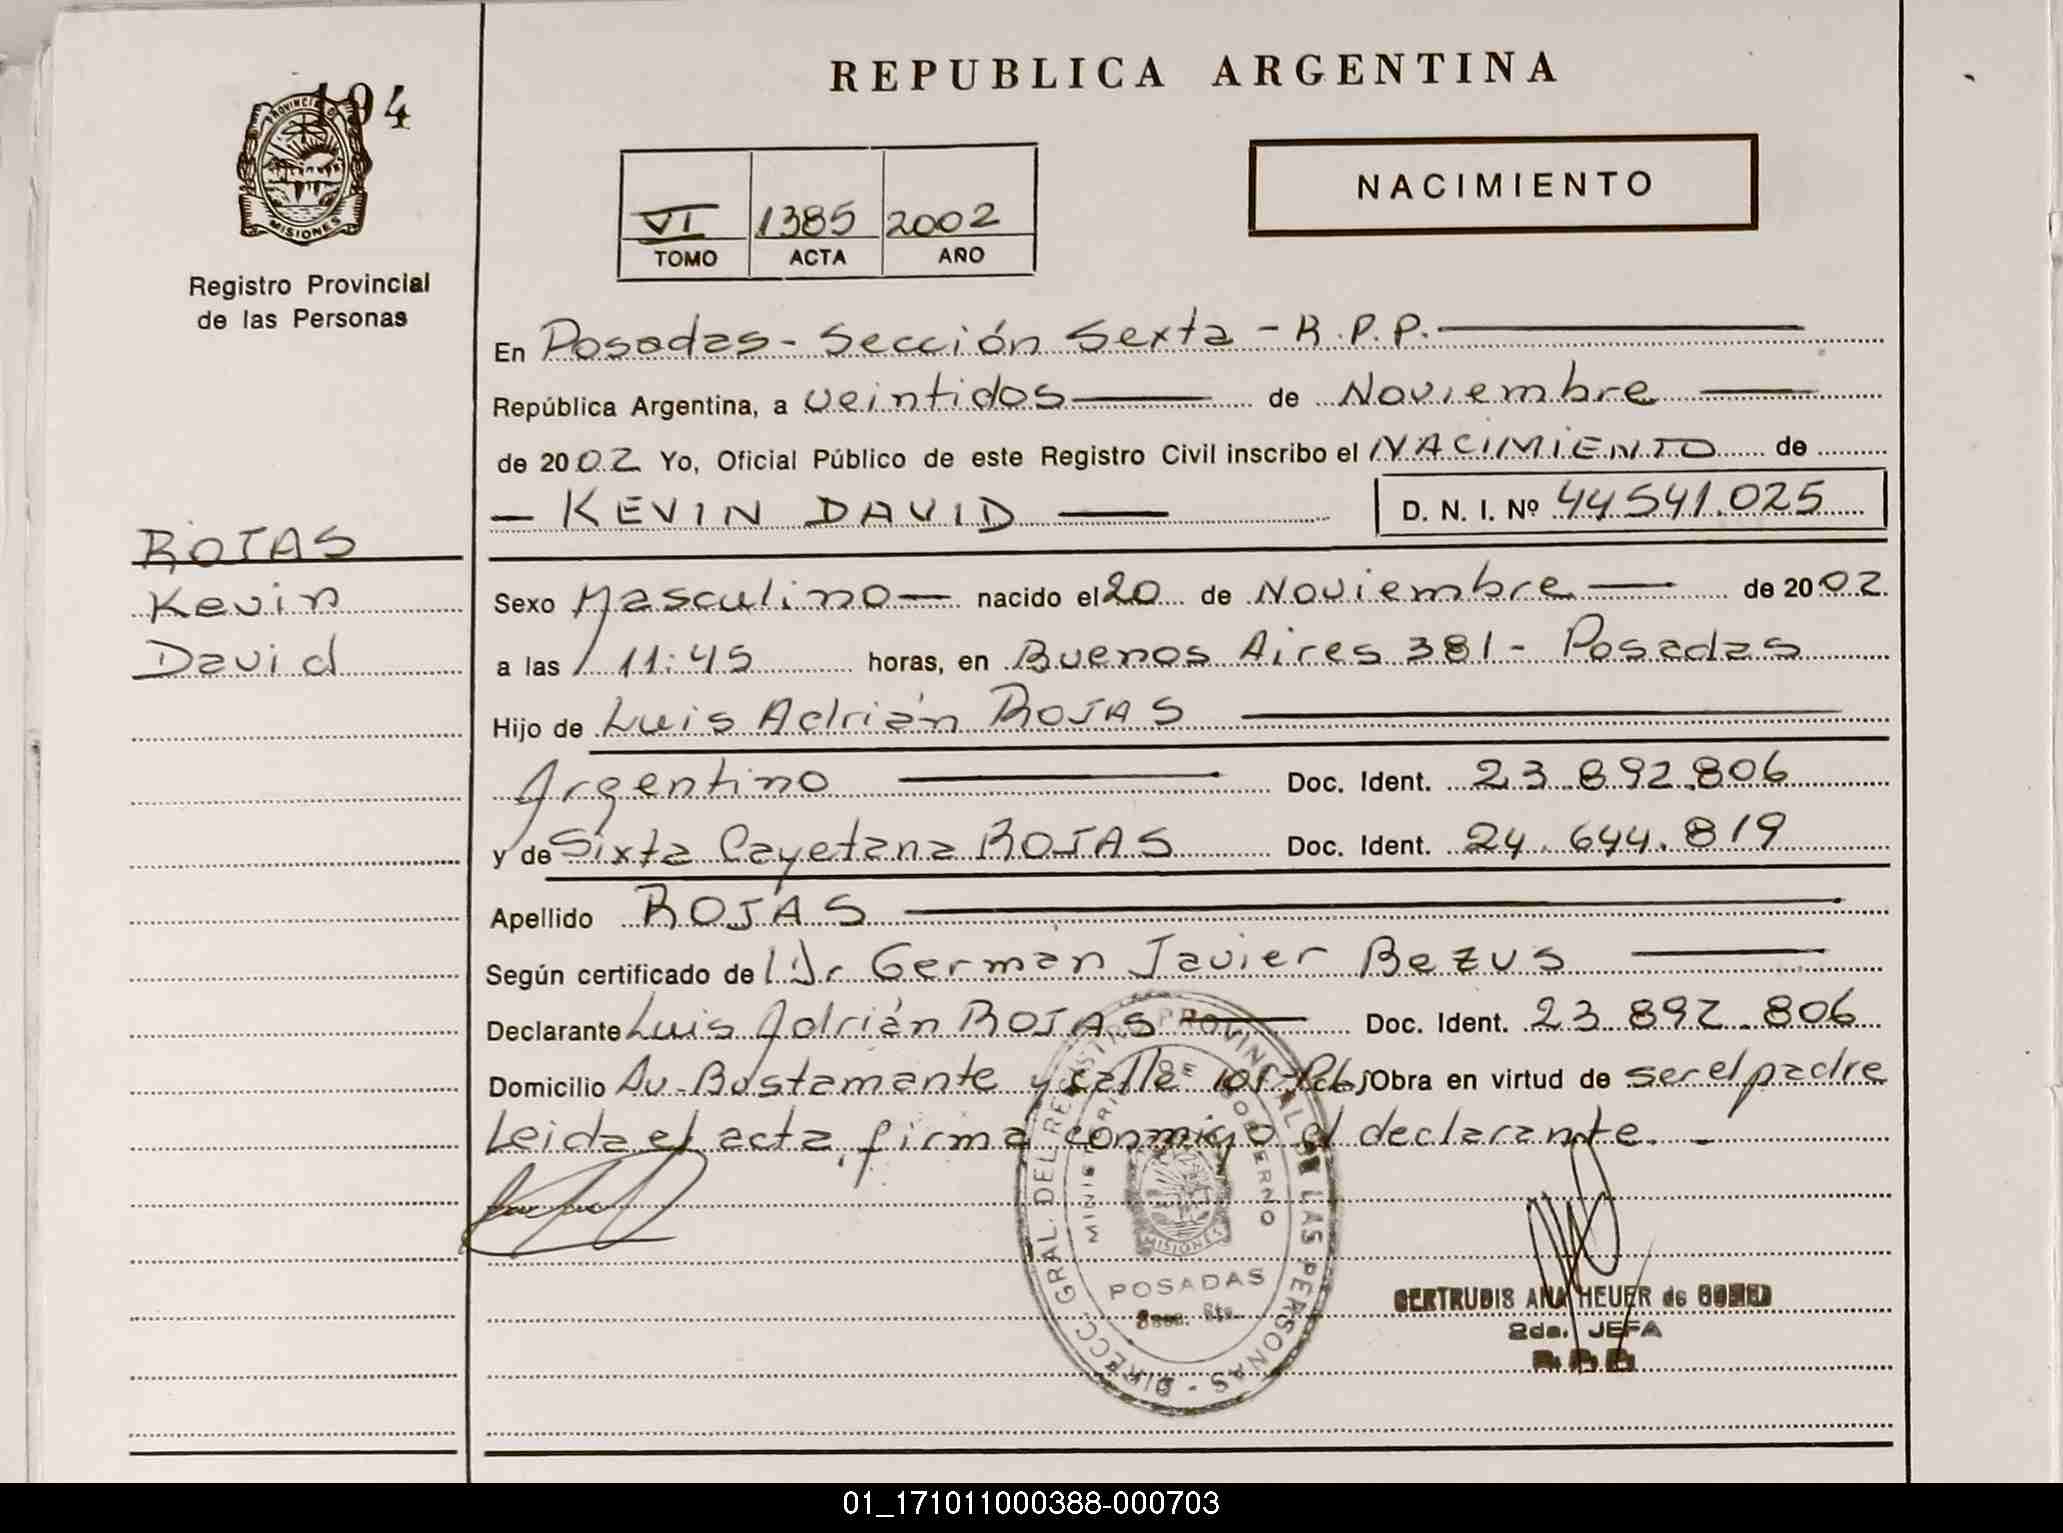 REPUBLICA ARGENTINA
194
PROVINCIA DE
MISIONES
Registro Provincial
de las Personas
NACIMIENTO
VI 1385 2002
TOMO ACTA AÑO
En Posadas - Sección Sexta - R.P.P.
República Argentina, a veintidos de Noviembre
de 2002 Yo, Oficial Público de este Registro Civil inscribo el NACIMIENTO de
- KEVIN DAVID - D. N. I. Nº 44.541.025
ROJAS
Kevin
David
Sexo Masculino nacido el 20 de Noviembre de 2002
a las 11:45 horas, en Buenos Aires 381 - Posadas
Hijo de Luis Adrián ROJAS
Argentino Doc. Ident. 23.892.806
y de Sixta Cayetana ROJAS Doc. Ident. 24.644.819
Apellido ROJAS
Según certificado de Dr German Javier Bezus
Declarante Luis Adrián ROJAS Doc. Ident. 23.892.806
Domicilio Av. Bustamante y calle 101 Obra en virtud de ser el padre
Leida el acta, firma conmigo el declarante. -
DIRECC. GRAL. DEL REGISTRO PROVINCIAL DE LAS PERSONAS -
MINISTERIO DE GOBIERNO
MISIONES
POSADAS
Secc. 6ta.
GERTRUDIS ANA HEUER de
2da. JEFA
R.P.P.
01_171011000388-000703